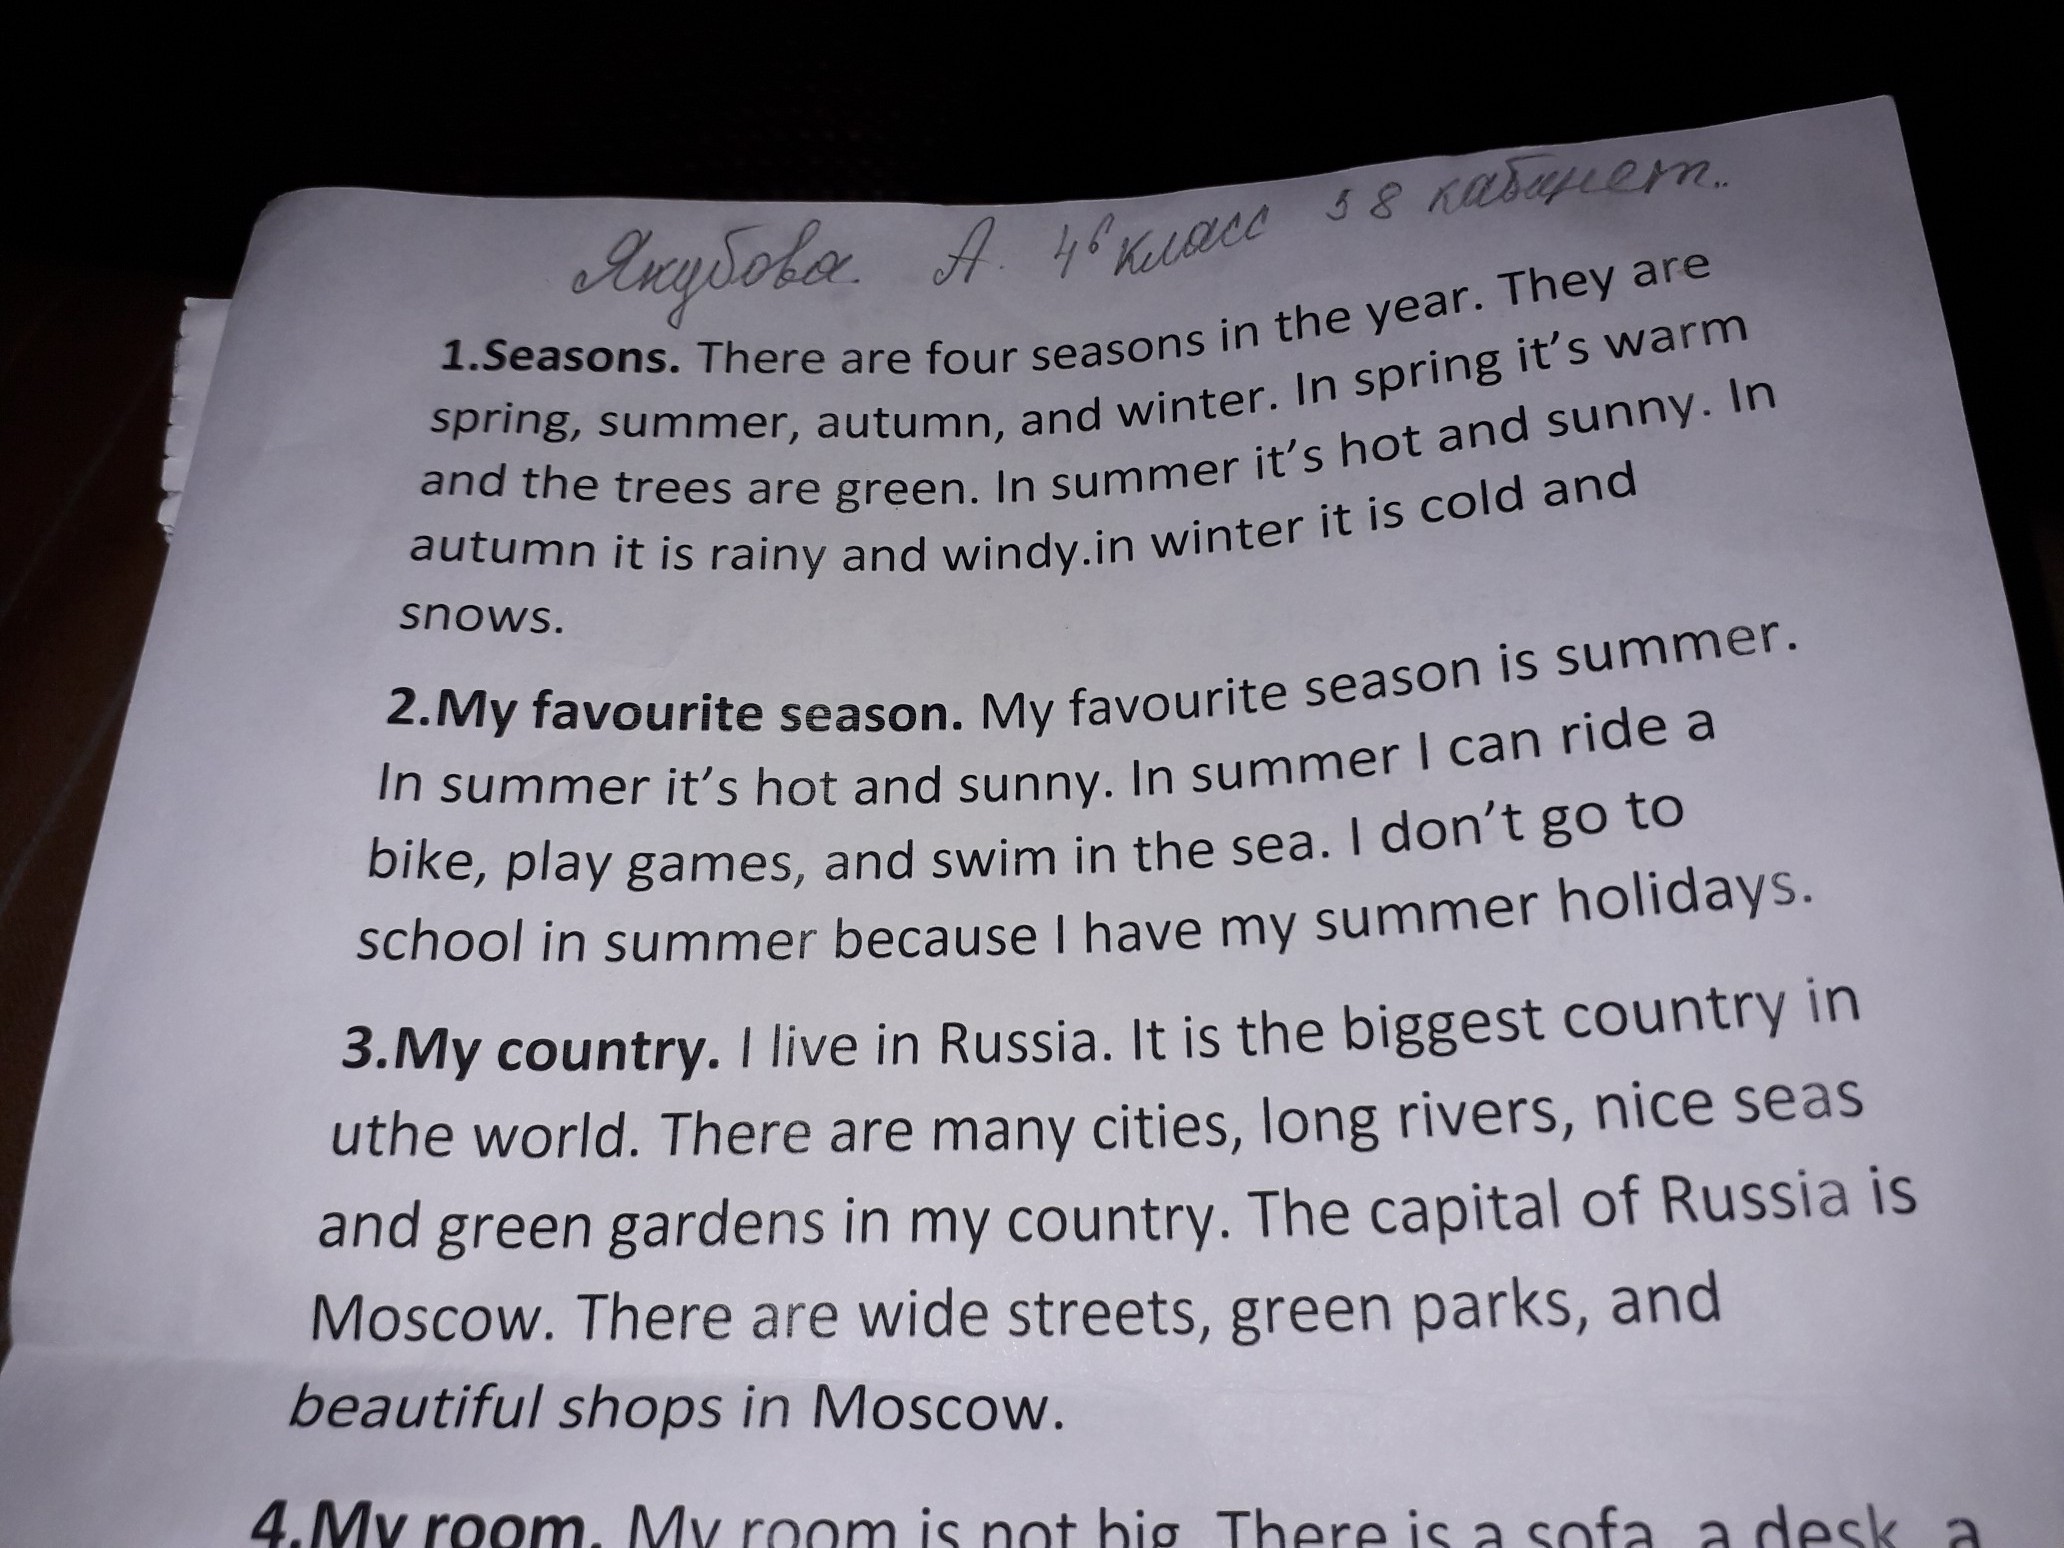 Якубова. А. 4б класс 58 кабинет.
1.Seasons. There are four seasons in the year. They are
spring, summer, autumn, and winter. In spring it's warm
and the trees are green. In summer it's hot and sunny. In
autumn it is rainy and windy.in winter it is cold and
snows.
2.My favourite season. My favourite season is summer.
In summer it's hot and sunny. In summer I can ride a
bike, play games, and swim in the sea. I don't go to
school in summer because I have my summer holidays.
3.My country. I live in Russia. It is the biggest country in
uthe world. There are many cities, long rivers, nice seas
and green gardens in my country. The capital of Russia is
Moscow. There are wide streets, green parks, and
beautiful shops in Moscow.
4.My room. My room is not big. There is a sofa, a desk, a